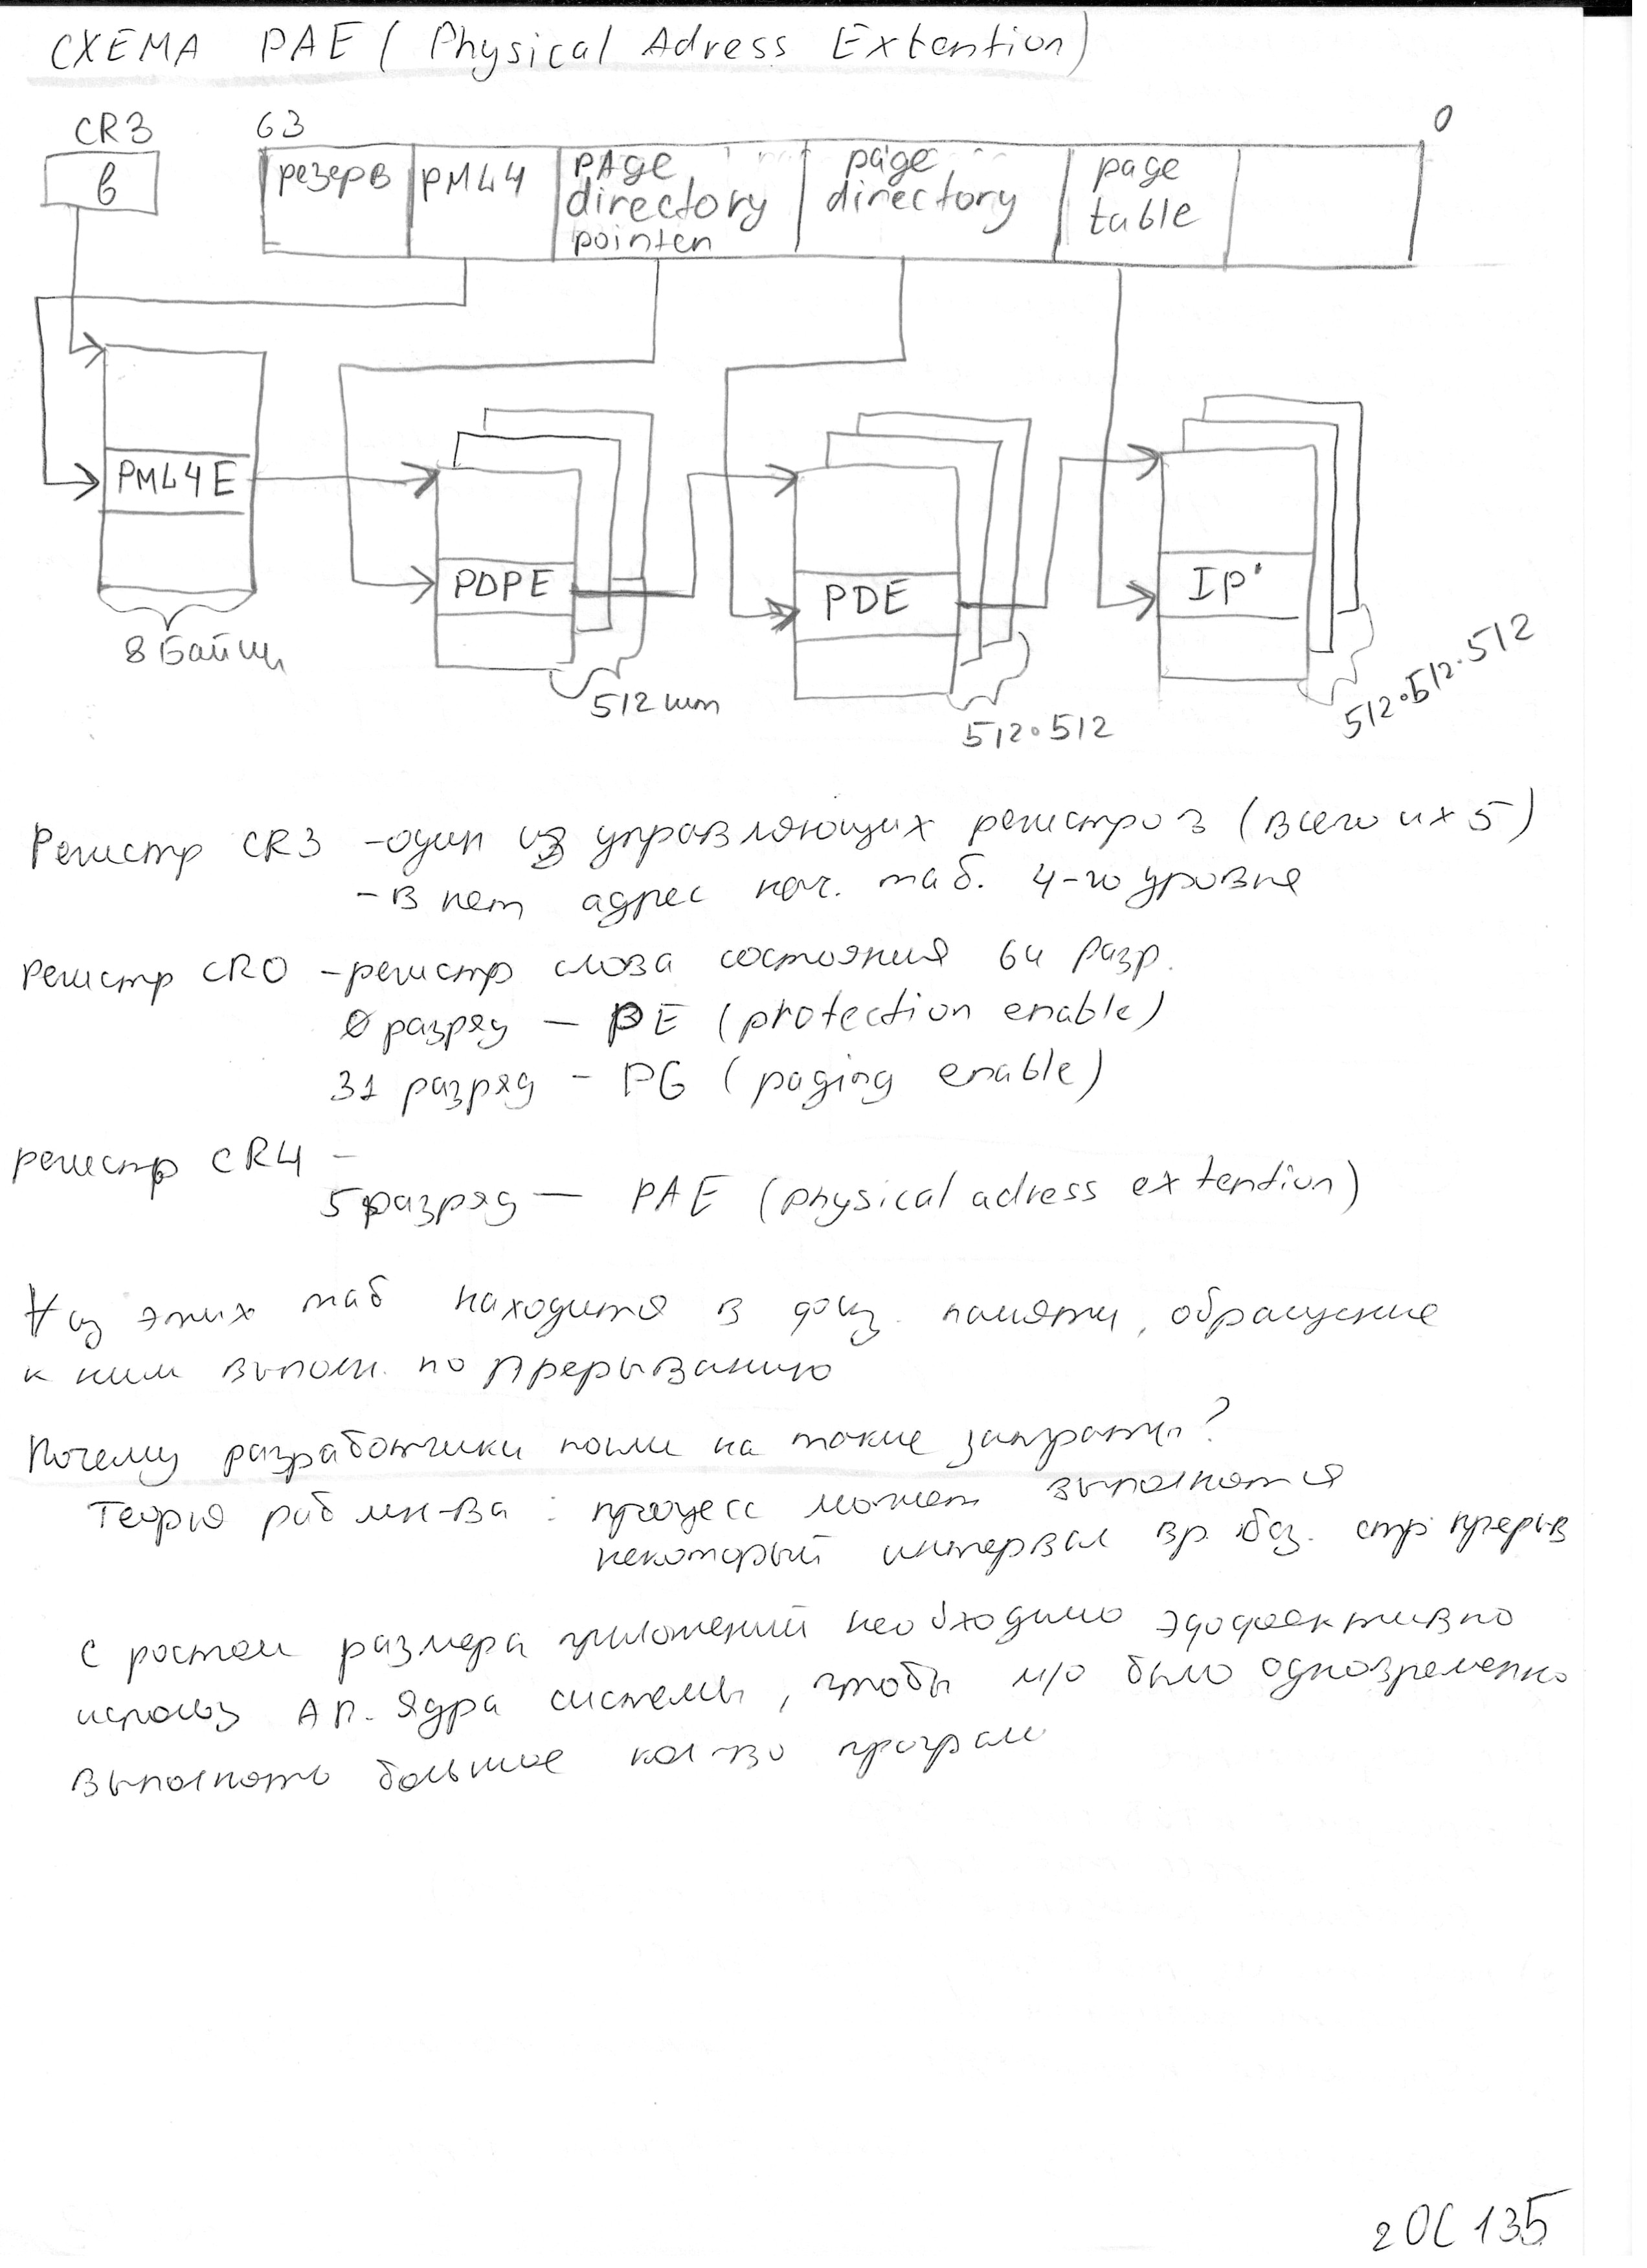 СХЕМА PAE (Physical Adress Extention)
CR3 63 0
в резерв PML4 PAge directory pointer page directory page table
PML4E
PDPE
PDE
IP'
8 байт
512 шт
512·512
512·512·512
Регистр CR3 - один из управляющих регистров (всего их 5)
- В нем адрес нач. таб. 4-го уровня
регистр CR0 - регистр слова состояния 64 разр.
0 разряд — PE (protection enable)
31 разряд - PG (paging enable)
регистр CR4 -
5 разряд — PAE (physical adress extention)
∀ из этих таб находится в физ. памяти, обращение
к ним выполн. по прерыванию
Почему разработчики пошли на такие затраты?
Теория раб мн-ва : процесс может выполнятся
некоторый интервал вр. без. стр прерыв
С ростом размера приложений необходимо эффективно
использ АП. Ядра системы, чтобы м/о было одновременно
выполнять большое кол-во програм
2ОС 135